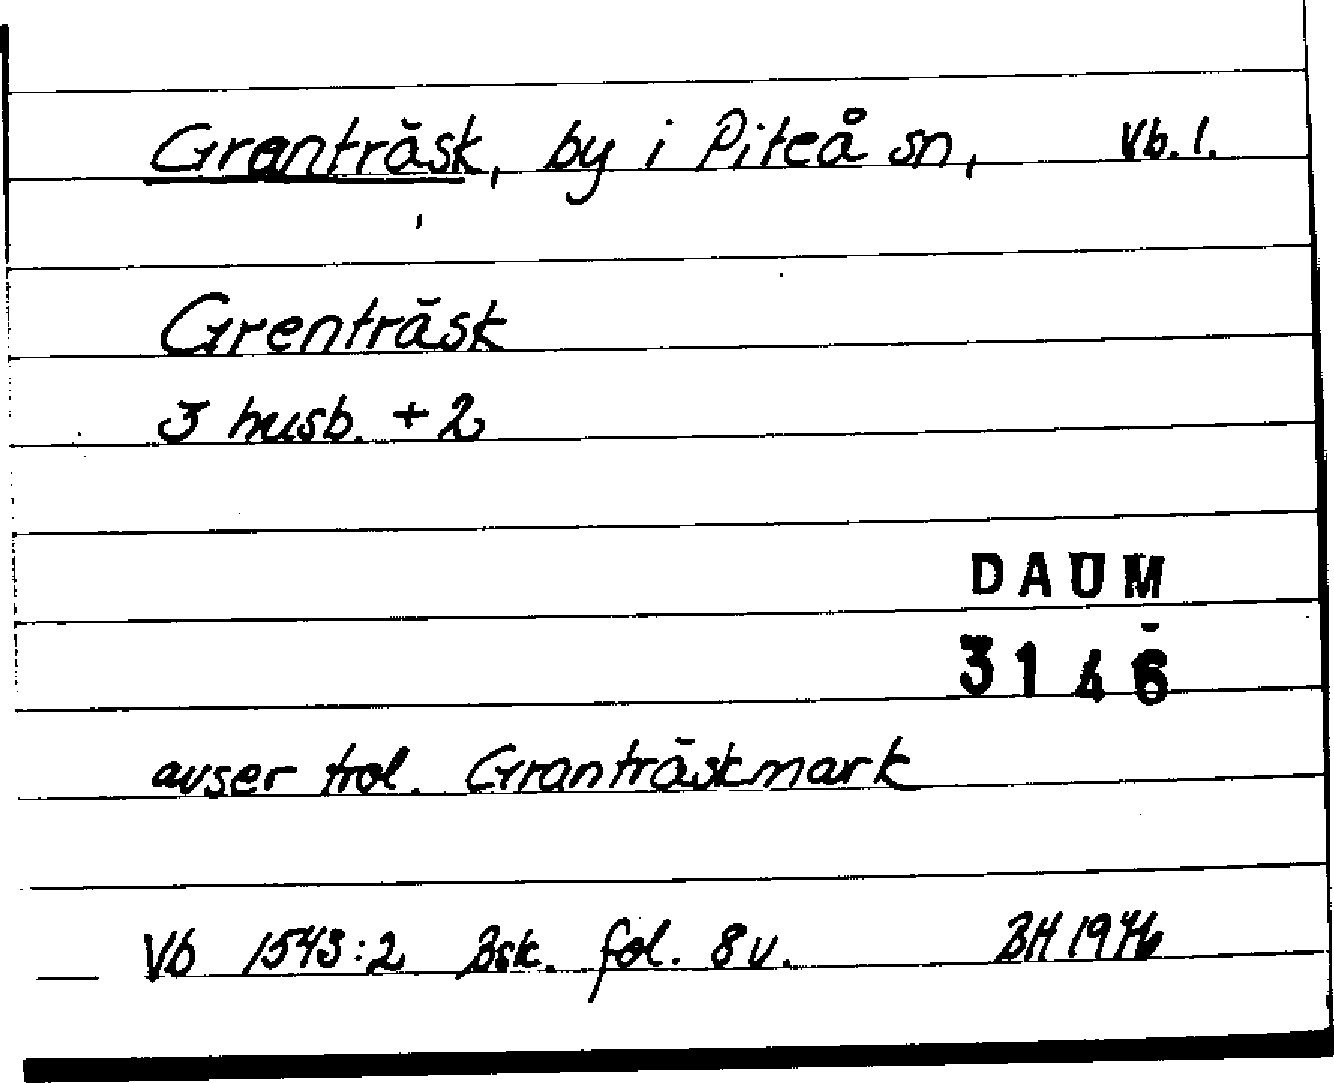 Granträsk, by i Piteå sn, Vb. l.
Grenträsk
3 husb. + 2
DAUM
3146
avser trol. Granträskmark
Vb 1543:2 Bsk. fol. 8 v. BH 1976